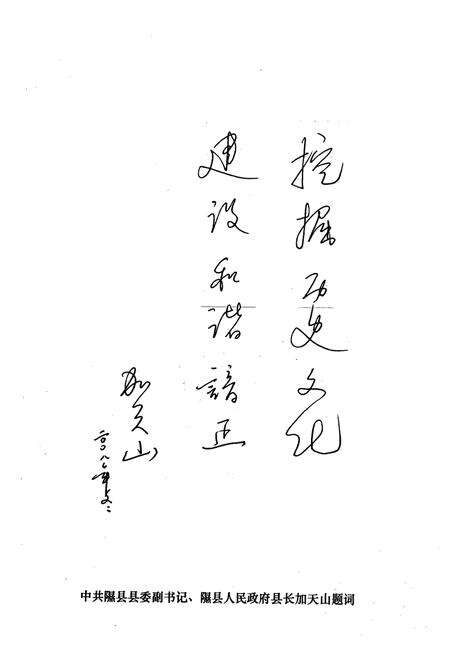 挖掘历史文化
建设和谐諳正
加天山
二〇〇八
中共隰县县委副书记、隰县人民政府县长加天山题词